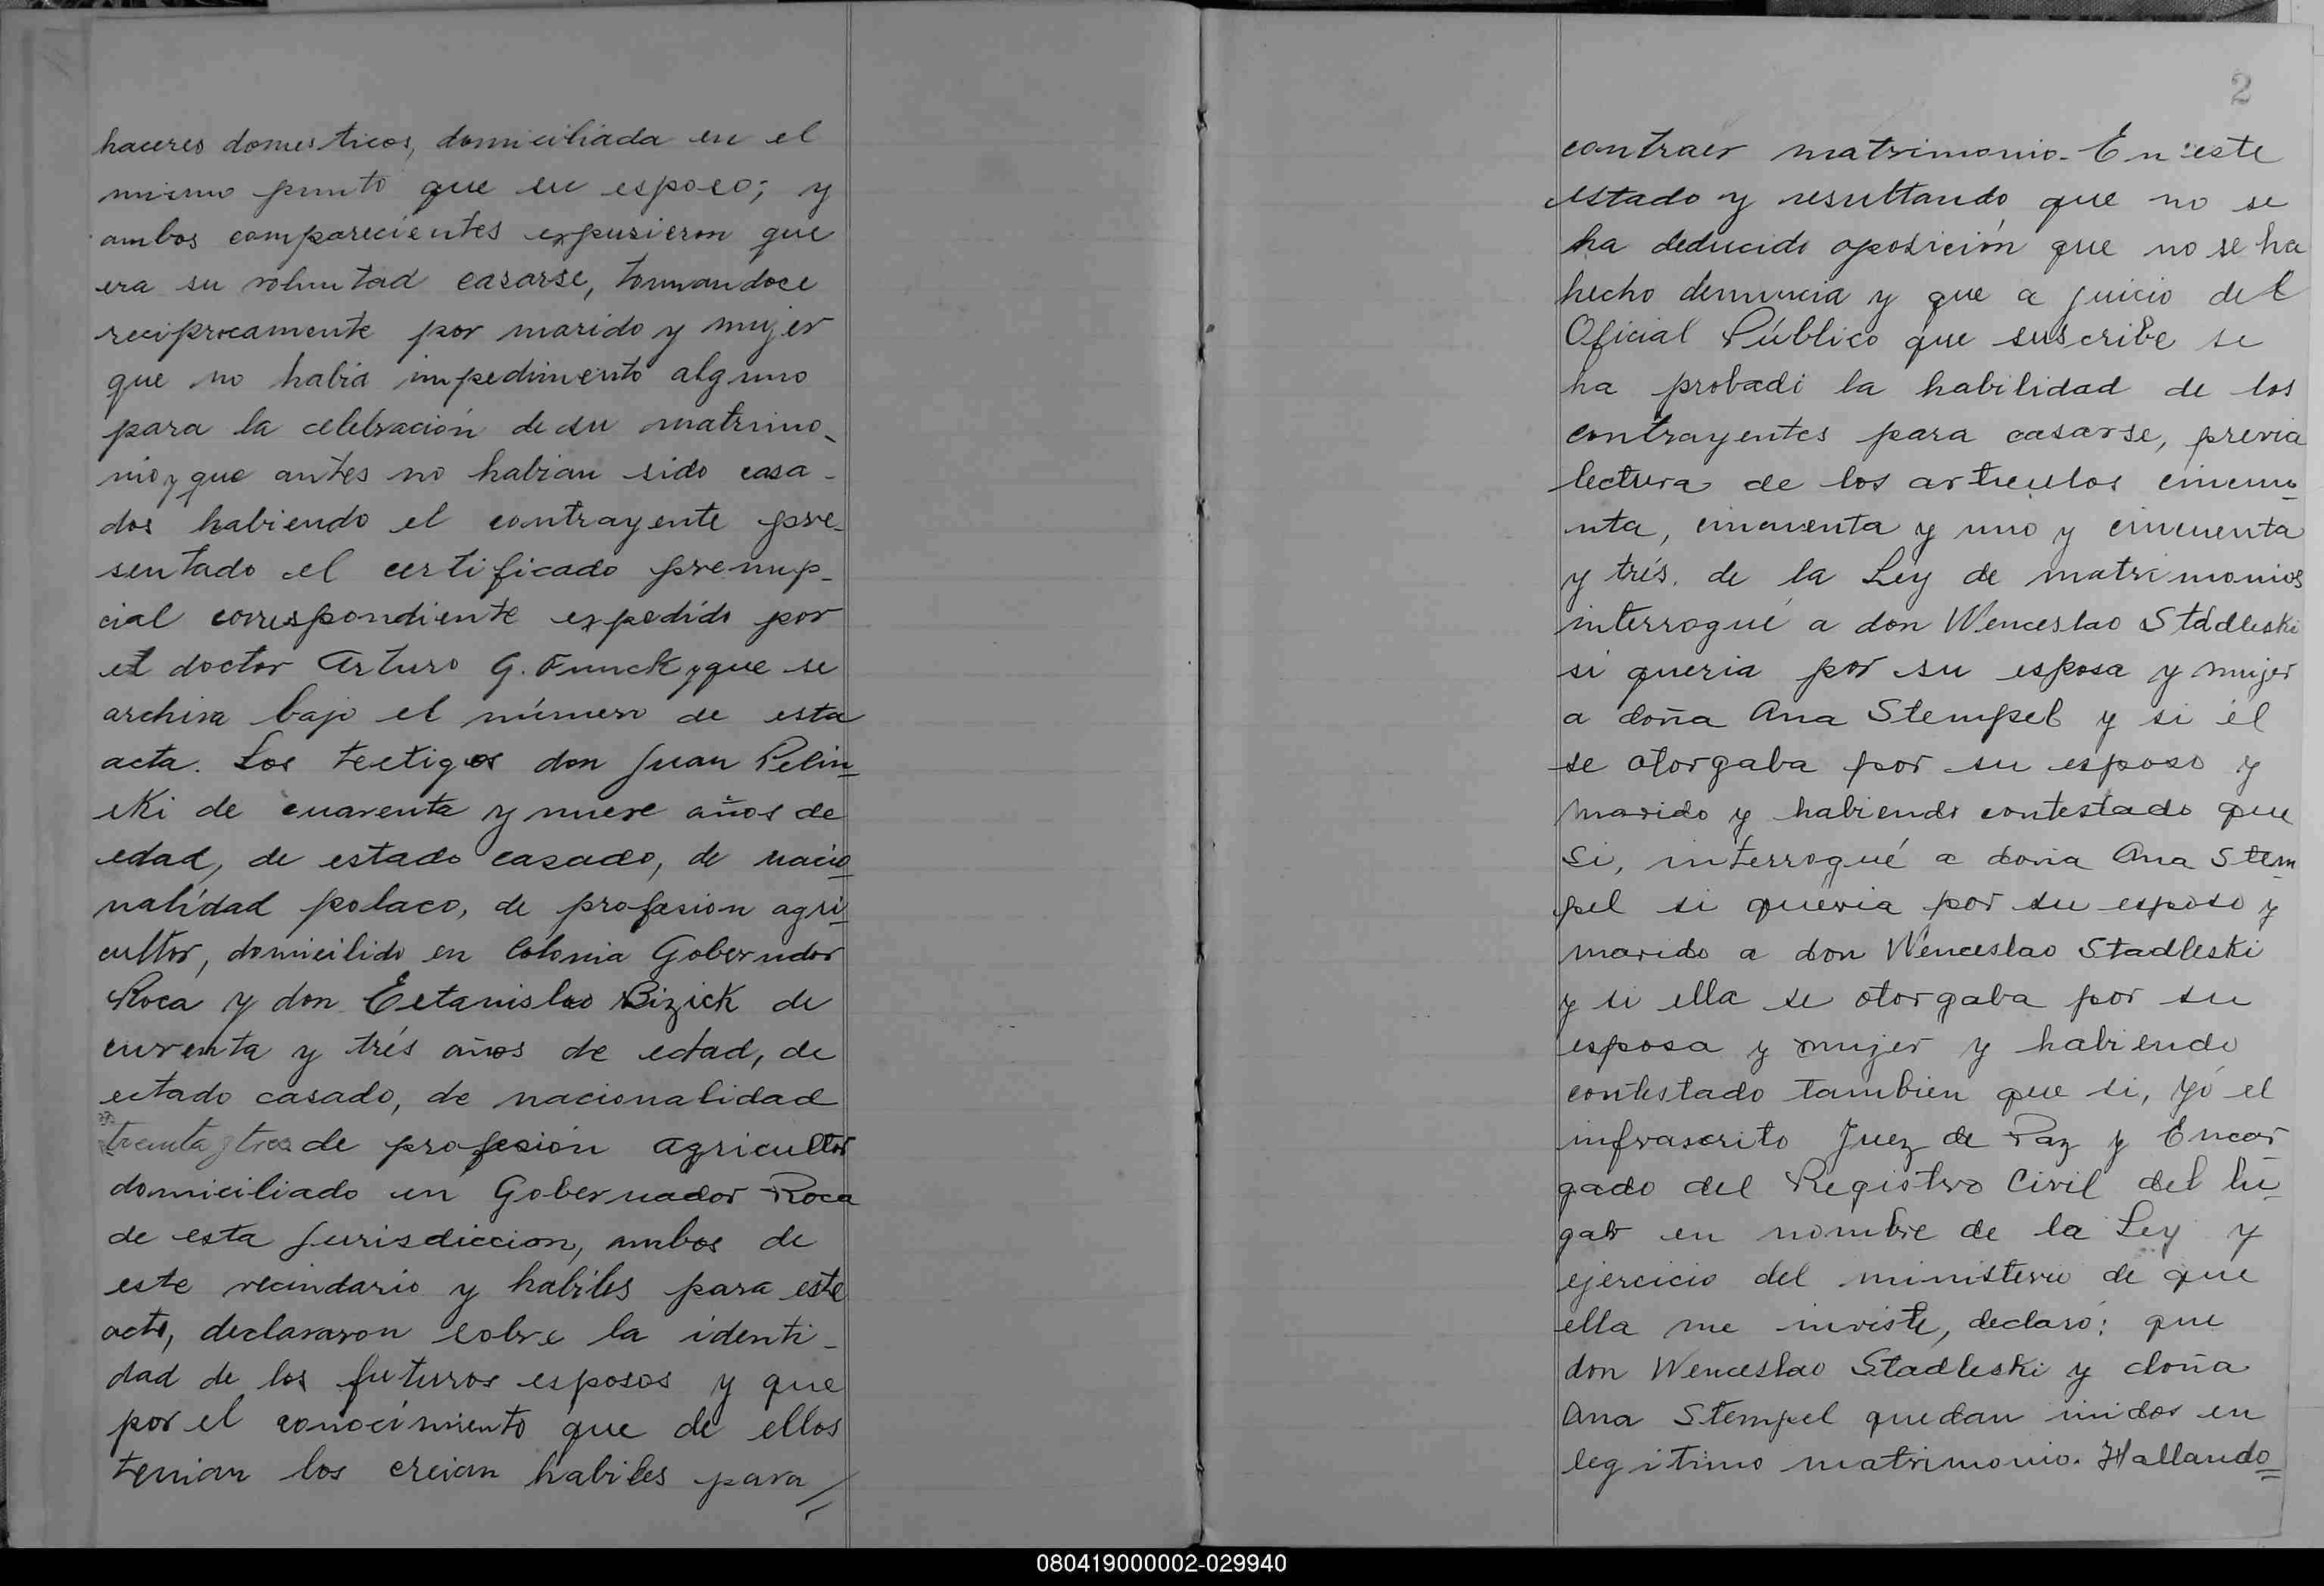 haceres domesticos, domiciliada en el
mismo punto que su esposo; y
ambos comparecientes expusieron que
era su voluntad casarse, tomandoce
reciprocamente por marido y mujer
que no habia impedimento alguno
para la celebración de su matrimo-
nio y que antes no habian sido casa-
dos habiendo el contrayente pre-
sentado el certificado prenup-
cial correspondiente expedido por
el doctor Arturo G. Funck y que se
archiva bajo el número de esta
acta. Los testigos don Juan Pelin-
ski de cuarenta y nueve años de
edad, de estado casado, de nacio-
nalidad polaco, de profesion agri-
cultor, domicilido en Colonia Goberndor
Roca y don Estanislao Bizick de
curenta y trés años de edad, de
estado casado, de nacionalidad
treinta y tres de profesión agricultor
domiciliado en Gobernador Roca
de esta jurisdiccion, ambos de
este vecindario y habiles para este
acto, declararon sobre la identi-
dad de los futuros esposos y que
por el conocimiento que de ellos
tenian los creian habiles para //
2
contraer matrimonio. En este
estado y resultando que no se
ha deducido oposición que no se ha
hecho denuncia y que a juicio del
Oficial Público que suscribe se
ha probado la habilidad de los
contrayentes para casarse, previa
lectura de los articulos cincue-
nta, cincuenta y uno y cincuenta
y trés. de la Ley de matrimonios
interrogué a don Wenceslao Stadleski
si queria por su esposa y mujer
a doña Ana Stempel y si él
se otorgaba por su esposo y
marido y habiendo contestado que
Si, interrogué a doña Ana Stem-
pel si queria por su esposo y
marido a don Wenceslao Stadleski
y si ella se otorgaba por su
esposa y mujer y habiendo
contestado tambien que si, yó el
infrascrito Juez de Paz y Encar
gado del Registro Civil del lu-
gar en nombre de la Ley y
ejercicio del ministerio de que
ella me inviste, declaró: que
don Wenceslao Stadleski y doña
Ana Stempel quedan unidos en
legitimo matrimonio. Hallando=
080419000002-029940